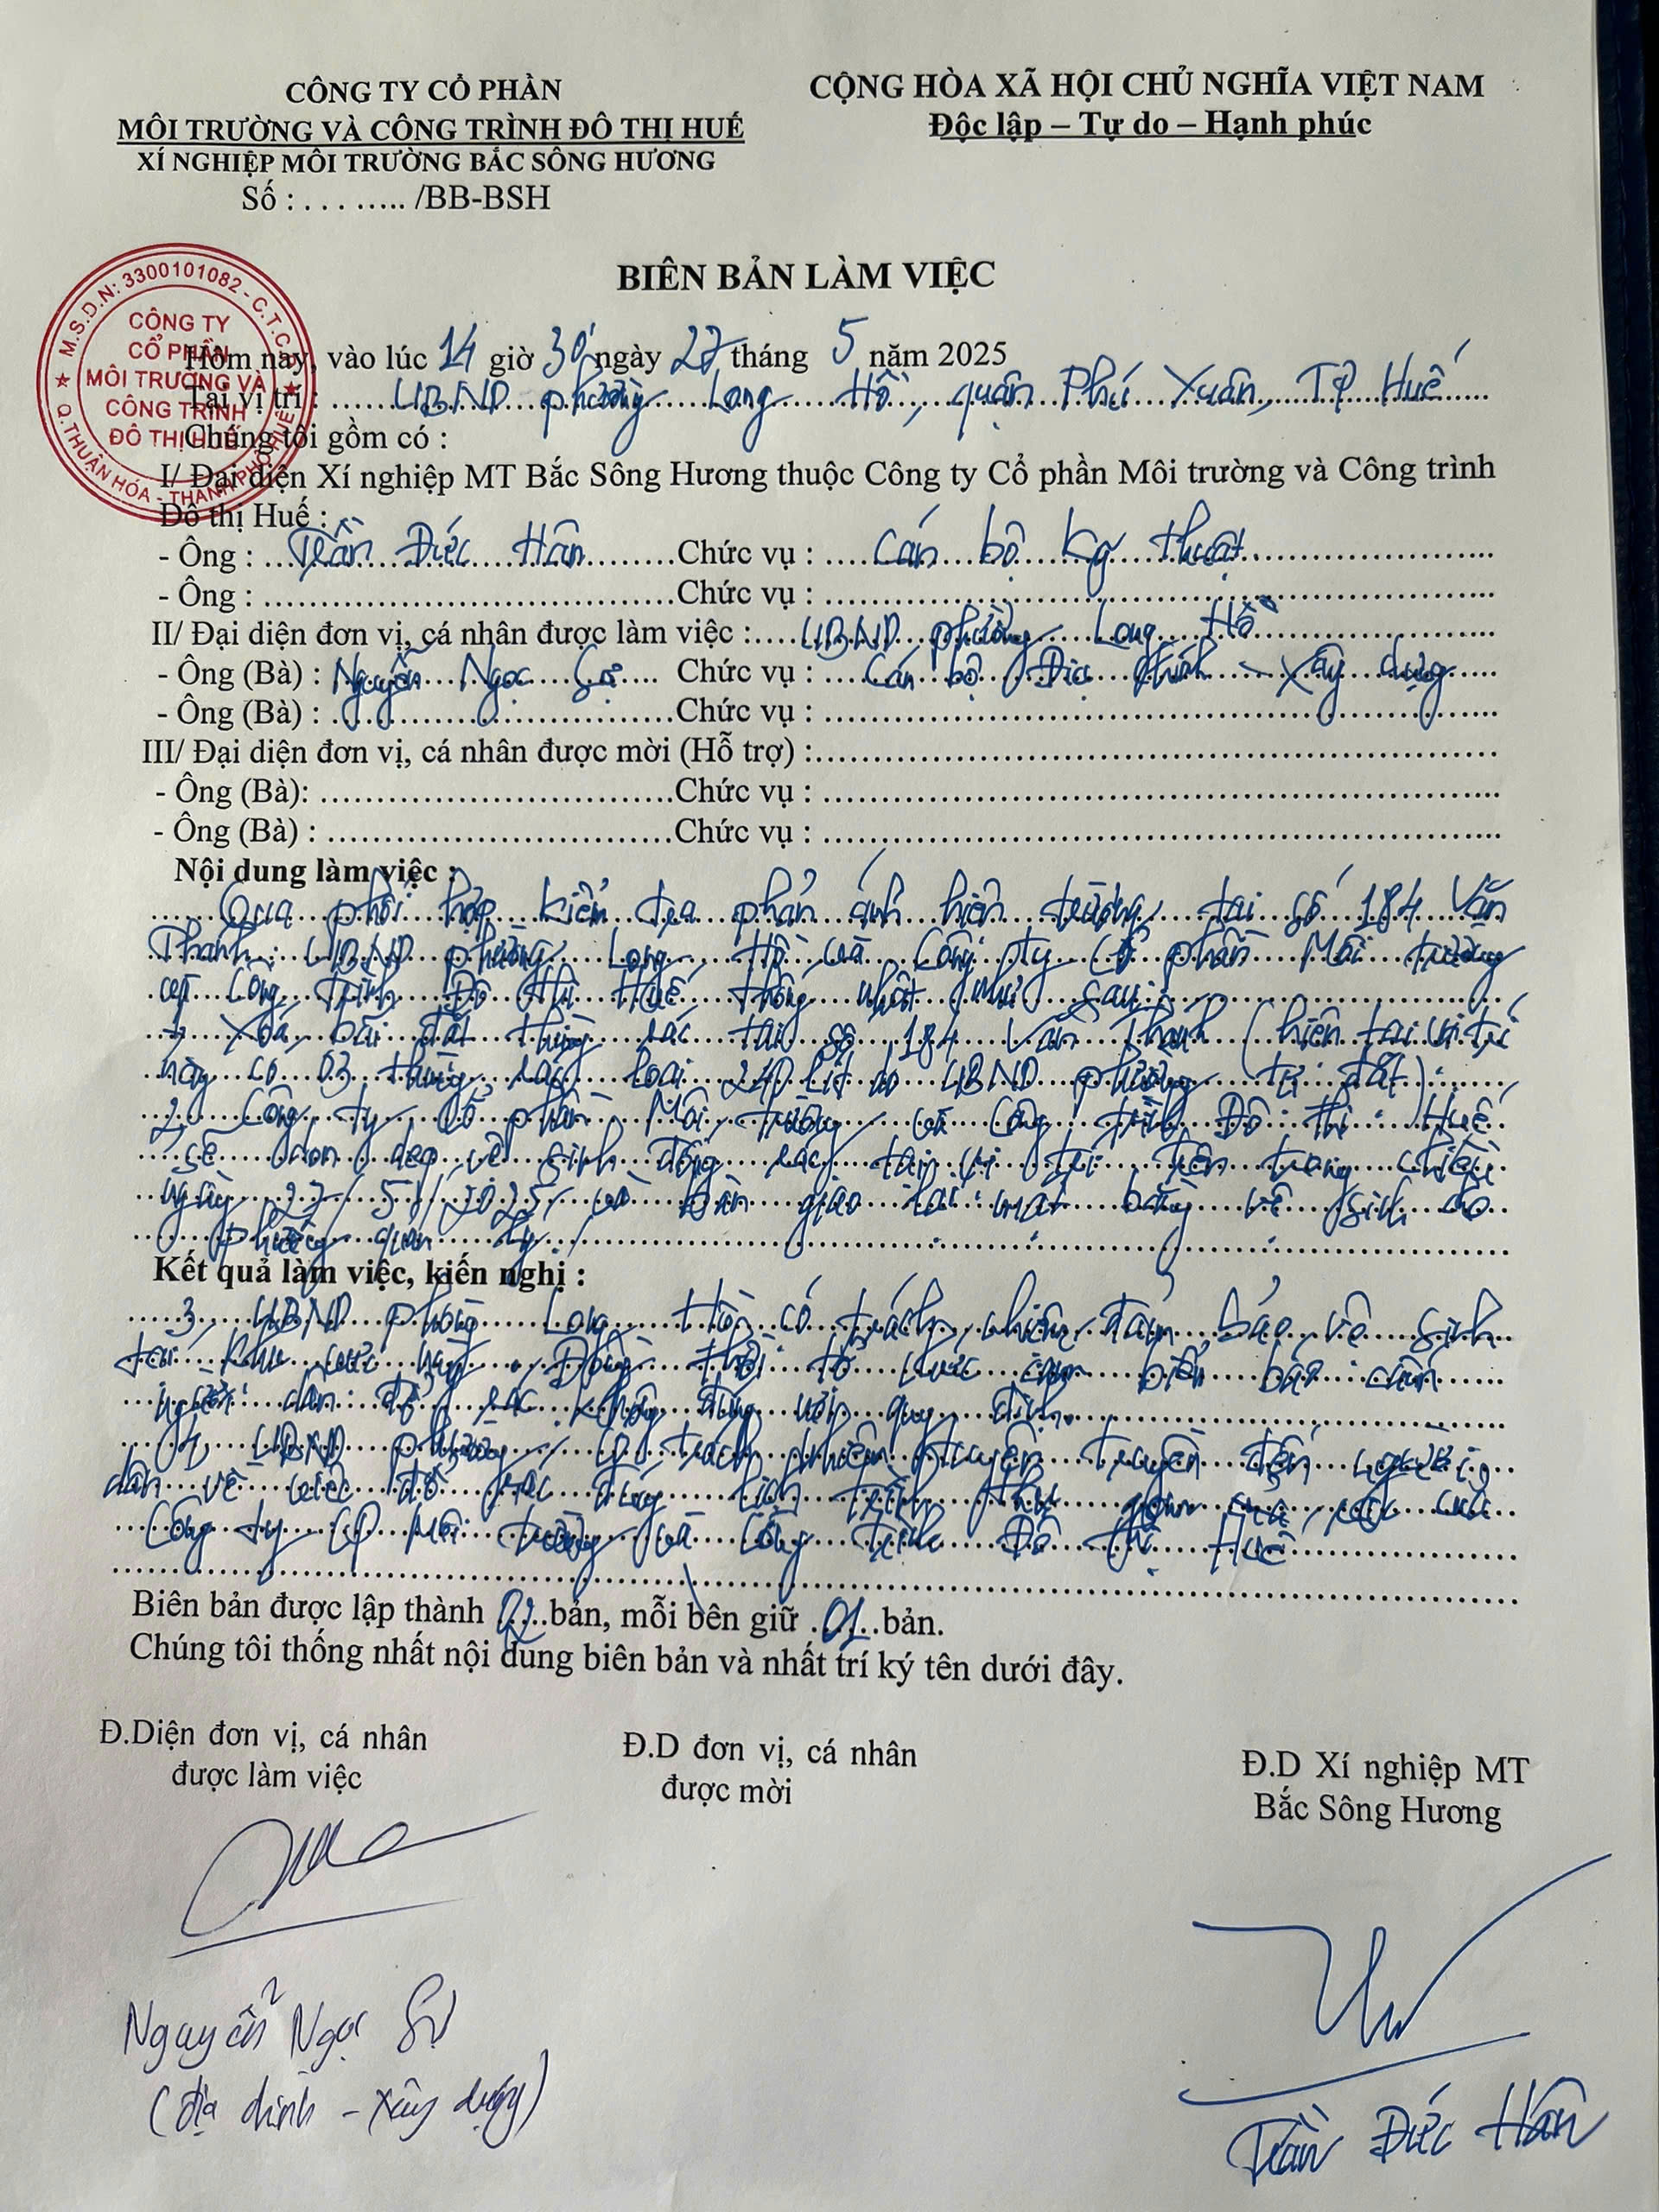 CÔNG TY CỔ PHẦN
MÔI TRƯỜNG VÀ CÔNG TRÌNH ĐÔ THỊ HUẾ
XÍ NGHIỆP MÔI TRƯỜNG BẮC SÔNG HƯƠNG
Số : . . . ..... /BB-BSH
CỘNG HÒA XÃ HỘI CHỦ NGHĨA VIỆT NAM
Độc lập – Tự do – Hạnh phúc
M.S.D.N: 3300101082 - C.T.C
Q.THUẬN HÓA - THÀNH PHỐ HUẾ
CÔNG TY
CỔ PHẦN
MÔI TRƯỜNG VÀ
CÔNG TRÌNH
ĐÔ THỊ HUẾ
BIÊN BẢN LÀM VIỆC
Hôm nay, vào lúc 14 giờ 30' ngày 27 tháng 5 năm 2025
Tại vị trí : UBND phường Long Hồ, quận Phú Xuân, TP Huế
Chúng tôi gồm có :
I/ Đại diện Xí nghiệp MT Bắc Sông Hương thuộc Công ty Cổ phần Môi trường và Công trình
Đô thị Huế :
- Ông : Trần Đức Hân Chức vụ : Cán bộ kỹ thuật
- Ông : Chức vụ :
II/ Đại diện đơn vị, cá nhân được làm việc : UBND phường Long Hồ
- Ông (Bà) : Nguyễn Ngọc Chức vụ : Cán bộ Địa chính - Xây dựng
- Ông (Bà) : Chức vụ :
III/ Đại diện đơn vị, cá nhân được mời (Hỗ trợ) :
- Ông (Bà): Chức vụ :
- Ông (Bà) : Chức vụ :
Nội dung làm việc :
Qua phối hợp kiểm tra phản ánh hiện trường tại số 184 Văn
Thánh: UBND phường Long Hồ và Công ty Cổ phần Môi trường
và Công trình Đô thị Huế thống nhất như sau:
1, Xóa bãi đặt thùng rác tại số 184 Văn Thánh (hiện tại vị trí
này có 03 thùng rác loại 240 lít do UBND phường tự đặt)
2. Công ty Cổ phần Môi trường và Công trình Đô thị Huế
sẽ dọn dẹp vệ sinh đống rác tại vị trí trên trong chiều
ngày 27/5/2025 và bàn giao lại mặt bằng vệ sinh cho
phường quản lý
Kết quả làm việc, kiến nghị :
3, UBND phường Long Hồ có trách nhiệm đảm bảo vệ sinh
tại khu vực này. Đồng thời tổ chức cắm biển báo cấm
người dân đổ rác không đúng nơi quy định.
4, UBND phường có trách nhiệm tuyên truyền đến người
dân về việc đổ rác đúng lịch trình thu gom của
Công ty CP Môi trường và Công trình Đô thị Huế
Biên bản được lập thành 02 bản, mỗi bên giữ 01 bản.
Chúng tôi thống nhất nội dung biên bản và nhất trí ký tên dưới đây.
Đ.Diện đơn vị, cá nhân
được làm việc
Đ.D đơn vị, cá nhân
được mời
Đ.D Xí nghiệp MT
Bắc Sông Hương
Nguyễn Ngọc
(địa chính - Xây dựng)
Trần Đức Hân